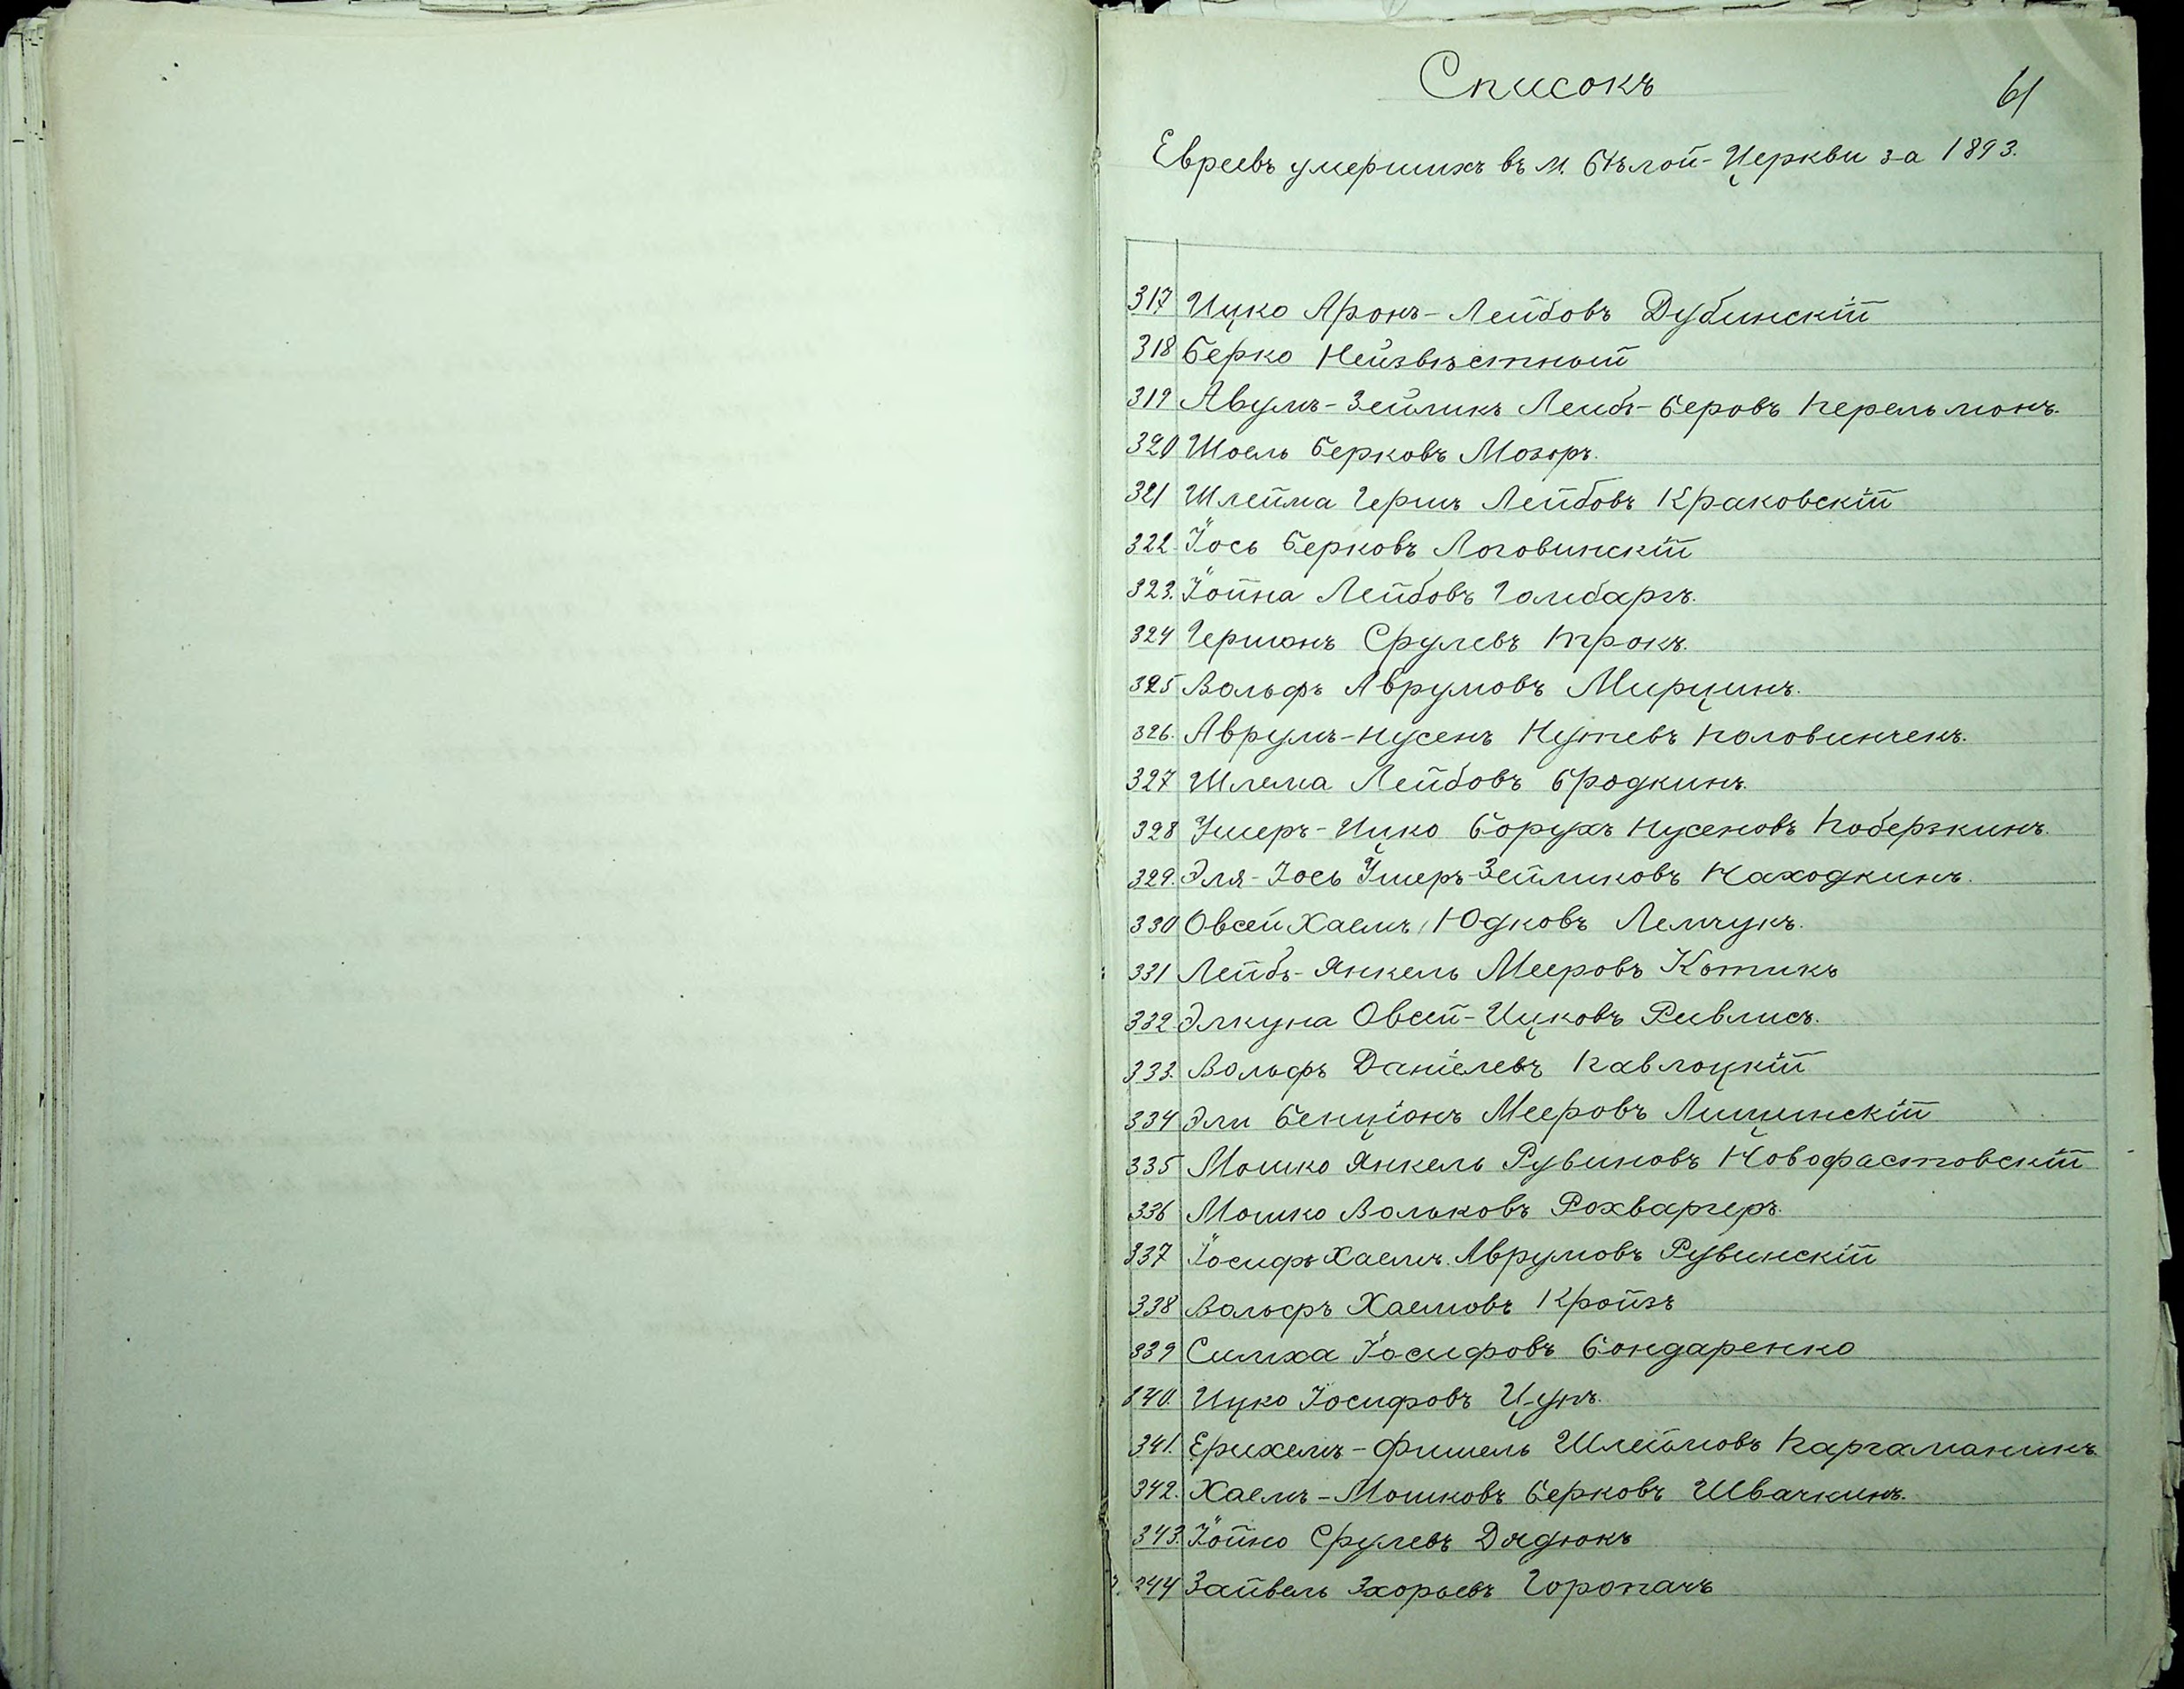 Списокъ
61
Евреевъ умершихъ въ м. Бѣлой-Церкви за 1893.
317 Ицко Аронъ-Лейбовъ Дубинскій
318 Берко Неизвѣстный
319 Авумъ-Зейликъ Лейбъ-Беровъ Перельмонъ.
320 Шоель Берковъ Мозоръ.
321 Шлейма Гершъ Лейбовъ Краковскій
322. Іось Берковъ Логовинскій
323. Іойна Лейбовъ Голибаргъ.
324 Гершонъ Срулевъ Трокъ.
325 Вольфъ Аврумовъ Мирцинъ.
326. Аврумъ-Нусенъ Нутевъ Половинчекъ.
327 Шлема Лейбовъ Бродкинъ.
328 Ушеръ-Ицко Борухъ Нусеновъ Поберзкинъ.
329. Эля-Іось Ушеръ-Зейликовъ Находкинъ.
330 Овсей Хаемъ Юдковъ Лемчукъ.
331 Лейбъ-Янкель Мееровъ Котикъ
332. Элкуна Овсей-Ицковъ Ривлисъ.
333. Вольфъ Даніелевъ Павлоцкій
334 Эли Бенціонъ Мееровъ Лищинскій
335 Мошко Янкель Рувиновъ Новофастовскій
336 Мошко Вольковъ Рохваргеръ.
337 Іосифъ Хаемъ. Аврумовъ Рувинскій
338 Вольфъ Хаемовъ Кройзъ
339 Симха Іосифовъ Бондаренко
340. Ицко Іосифовъ Цупъ.
341. Ерихемъ-Фишель Шлеймовъ Каргаманинъ.
342. Хаемъ-Мошковъ Берковъ Швачкинъ.
343. Іойно Срулевъ Дядюкъ
344 Зайвель Зхорьевъ Горопачъ